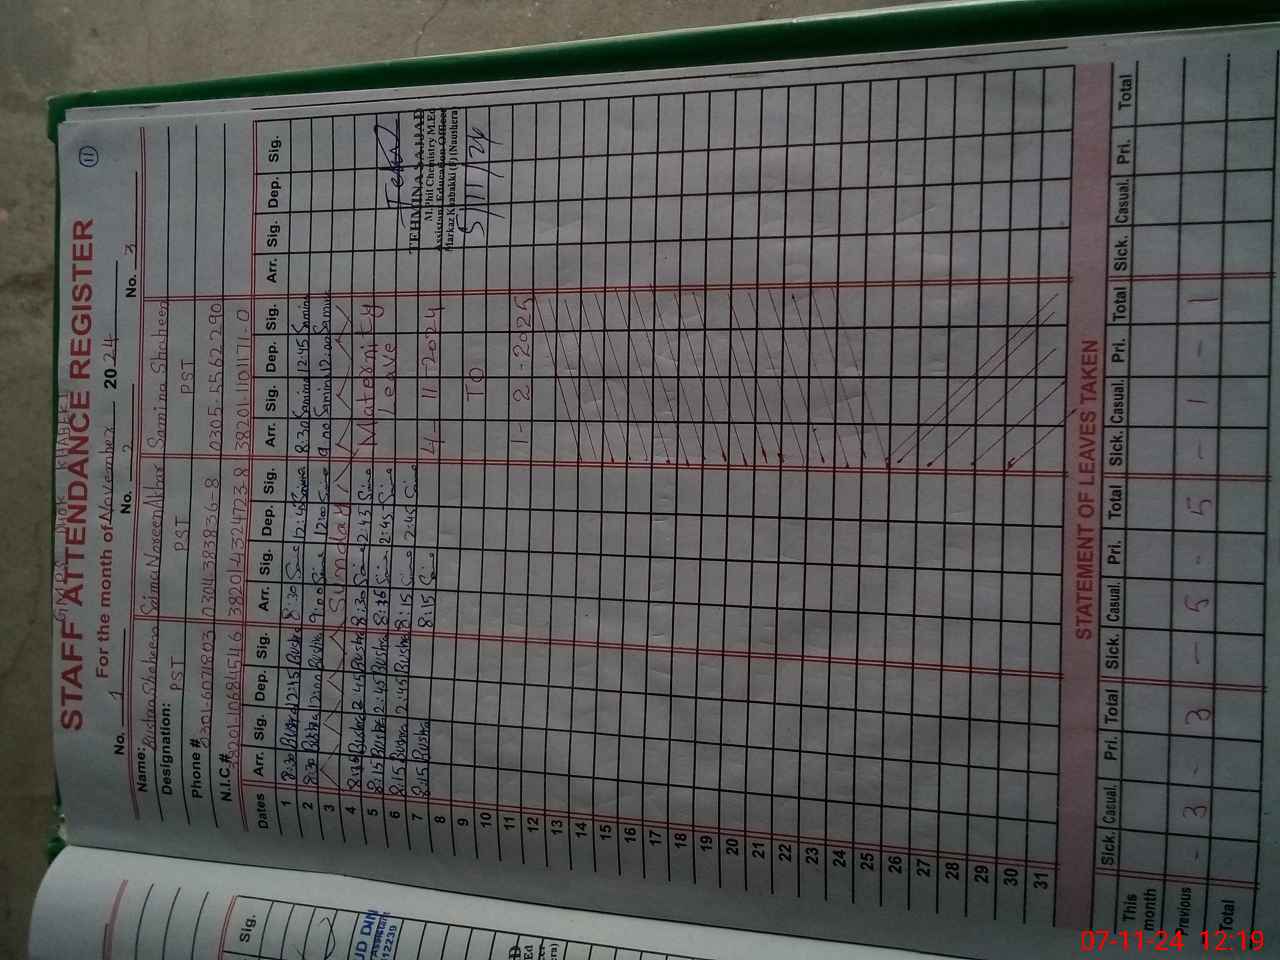 11
STAFF ATTENDANCE REGISTER
For the month of November 2024
No. 1 No. 2 No. 3
Name: Bushra Shaheen Saima Nasreen Akhtar Samina Shaheen
Designation: PST PST PST
Phone # 0304-383836-8 0305-5562290
N.I.C.# 38201-1101171-0
Dates Arr. Sig. Dep. Sig. Arr. Sig. Dep. Sig. Arr. Sig. Dep. Sig. Arr. Sig. Dep. Sig.
1 8:30 Bushra 12:45 Bushra 8:30 Saima 12:45 Saima 8:30 Samina 12:45 Samina
2 8:30 Bushra 12:00 Bushra 9:00 Saima 12:00 Saima 9:00 Samina 12:00 Samina
3 Sunday
4 8:15 Bushra 2:45 Bushra 8:30 Saima 2:43 Saima Maternity
5 8:15 Bushra 2:45 Bushra 8:15 Saima 2:45 Saima Leave
6 8:15 Bushra 2:45 Bushra 8:15 Saima 2:45 Saima
7 8:15 Bushra 8:15 Saima 4-11-2024
8
9 TO
10
11 1-2-2025
12
13
14
15
16
17
18
19
20
21
22
23
24
25
26
27
28
29
30
31
TEHMINA SAJJAD
M.Phil Chemistry M.Ed
Assistant Education Officer
Markaz Khabakki (F) (Naushera)
5/11/24
STATEMENT OF LEAVES TAKEN
Sick. Casual. Pri. Total Sick. Casual. Pri. Total Sick. Casual. Pri. Total Sick. Casual. Pri. Total
This month
Previous - 3 - 3 - 5 - 5 - 1 - 1
Total
Sig.
UD DIN
12239
07-11-24 12:19